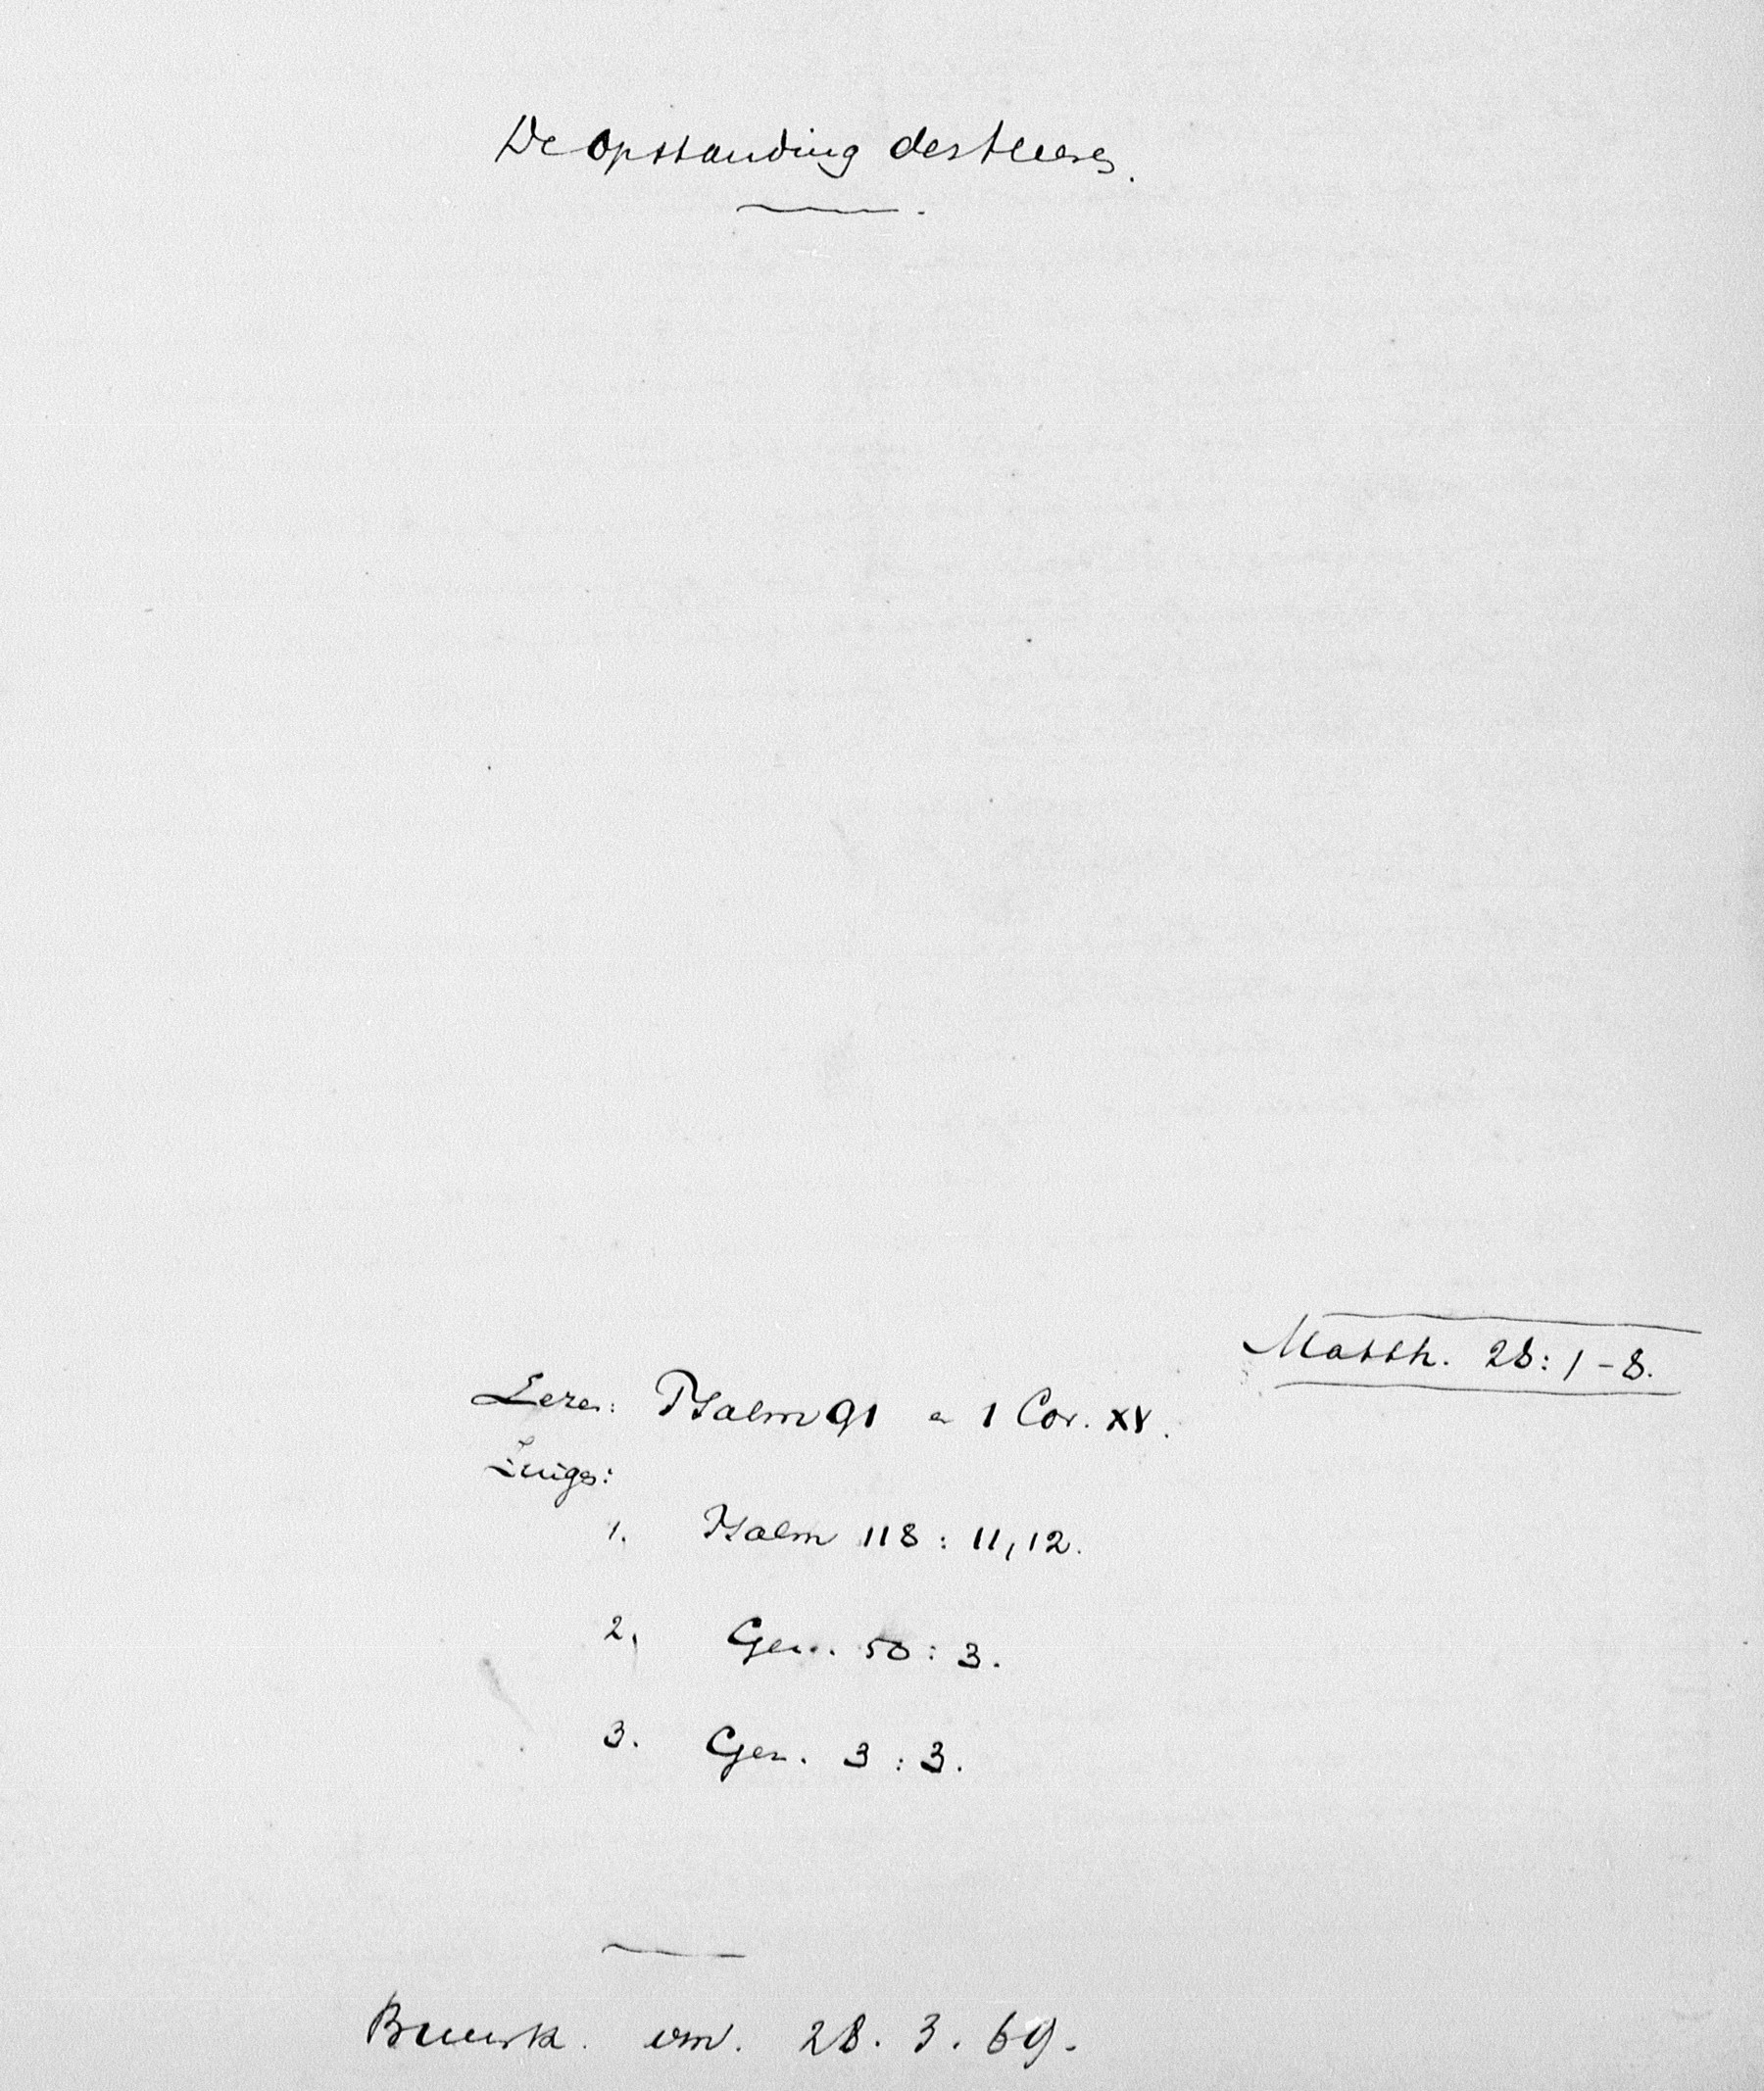 De Opstanding des Heeres.
Matth. 28: 1-8.
Leze: Psalm 91 en 1 Cor. XV.
Zinge:
1. Psalm 118 : 11, 12.
2. Gez. 50 : 3.
3. Gez. 3 : 3.
vm. 28. 3. 69.